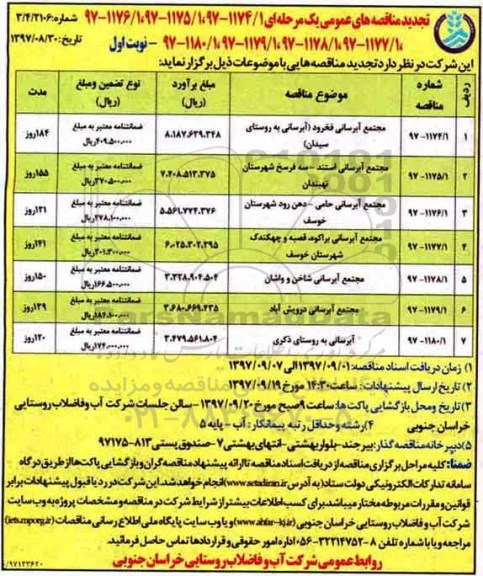 تجدید مناقصه های عمومی یک مرحله ای ۹۷-۱۱۷۴/۱ ،۹۷-۱۱۷۵/۱ ،۹۷-۱۱۷۶/۱
شماره: ۳/۴/۲۱۰۶
۹۷-۱۱۷۷/۱ ،۹۷-۱۱۷۸/۱ ،۹۷-۱۱۷۹/۱ ،۹۷-۱۱۸۰/۱ - نوبت اول
تاریخ: ۱۳۹۷/۰۸/۳۰
این شرکت در نظر دارد تجدید مناقصه هایی با موضوعات ذیل برگزار نماید:
ردیف شماره مناقصه موضوع مناقصه مبلغ برآورد (ریال) نوع تضمین و مبلغ (ریال) مدت
۱ ۹۷-۱۱۷۴/۱ مجتمع آبرسانی فخرود (آبرسانی به روستای سیدان) ۸،۱۸۷،۶۳۹،۳۴۸ ضمانتنامه معتبر به مبلغ ۴۰۹،۵۰۰،۰۰۰ریال ۱۸۴روز
۲ ۹۷-۱۱۷۵/۱ مجتمع آبرسانی استند - سه فرسخ شهرستان نهبندان ۷،۴۰۸،۵۱۳،۳۷۵ ضمانتنامه معتبر به مبلغ ۳۷۰،۵۰۰،۰۰۰ریال ۱۵۵روز
۳ ۹۷-۱۱۷۶/۱ مجتمع آبرسانی حامی - دهن رود شهرستان خوسف ۵،۵۶۱،۷۷۴،۳۷۶ ضمانتنامه معتبر به مبلغ ۲۷۸،۱۰۰،۰۰۰ریال ۱۳۱روز
۴ ۹۷-۱۱۷۷/۱ مجتمع آبرسانی براکوه، قصبه و چهکندک شهرستان خوسف ۶،۰۲۵،۳۰۲،۳۹۵ ضمانتنامه معتبر به مبلغ ۳۰۱،۳۰۰،۰۰۰ریال ۱۴۱روز
۵ ۹۷-۱۱۷۸/۱ مجتمع آبرسانی شاخن و واشان ۳،۳۲۸،۹۰۴،۵۰۴ ضمانتنامه معتبر به مبلغ ۱۶۶،۵۰۰،۰۰۰ریال ۱۵۰روز
۶ ۹۷-۱۱۷۹/۱ مجتمع آبرسانی درویش آباد ۳،۶۸۰،۶۶۹،۴۳۵ ضمانتنامه معتبر به مبلغ ۱۸۴،۱۰۰،۰۰۰ریال ۱۳۹روز
۷ ۹۷-۱۱۸۰/۱ آبرسانی به روستای ذکری ۳،۴۷۹،۵۶۱،۸۰۴ ضمانتنامه معتبر به مبلغ ۱۷۴،۰۰۰،۰۰۰ریال ۱۲۰روز
۱) زمان دریافت اسناد مناقصه: ۱۳۹۷/۰۹/۰۱ الی ۱۳۹۷/۰۹/۰۷
۲) تاریخ ارسال پیشنهادات: ساعت ۱۴:۳۰ مورخ ۱۳۹۷/۰۹/۱۹
۳) تاریخ و محل بازگشایی پاکت ها: ساعت ۹ صبح مورخ ۱۳۹۷/۰۹/۲۰ - سالن جلسات شرکت آب و فاضلاب روستایی
خراسان جنوبی ۴) رشته و حداقل رتبه پیمانکار: آب - پایه ۵
۵) دبیرخانه مناقصه گذار: بیرجند- بلوار بهشتی - انتهای بهشتی ۷- صندوق پستی ۸۱۳-۹۷۱۷۵
ضمنا: کلیه مراحل برگزاری مناقصه از دریافت اسناد مناقصه تا ارائه پیشنهاد مناقصه گران و بازگشایی پاکت ها از طریق درگاه
سامانه تدارکات الکترونیکی دولت ستاد (به آدرس www.setadiran.ir) انجام خواهد شد. این شرکت در رد یا قبول پیشنهادات برابر
قوانین و مقررات مربوطه مختار میباشد. برای کسب اطلاعات بیشتر از شرایط شرکت در مناقصه و مشخصات پروژه به وب سایت
شرکت آب و فاضلاب روستایی خراسان جنوبی (www.abfar-kj.ir) و یا وب سایت پایگاه ملی اطلاع رسانی مناقصات (iets.mporg.ir)
مراجعه و یا با شماره تلفن ۸-۳۲۲۱۴۷۵۲-۰۵۶ اداره امور حقوقی و قراردادها تماس حاصل فرمائید.
روابط عمومی شرکت آب و فاضلاب روستایی خراسان جنوبی